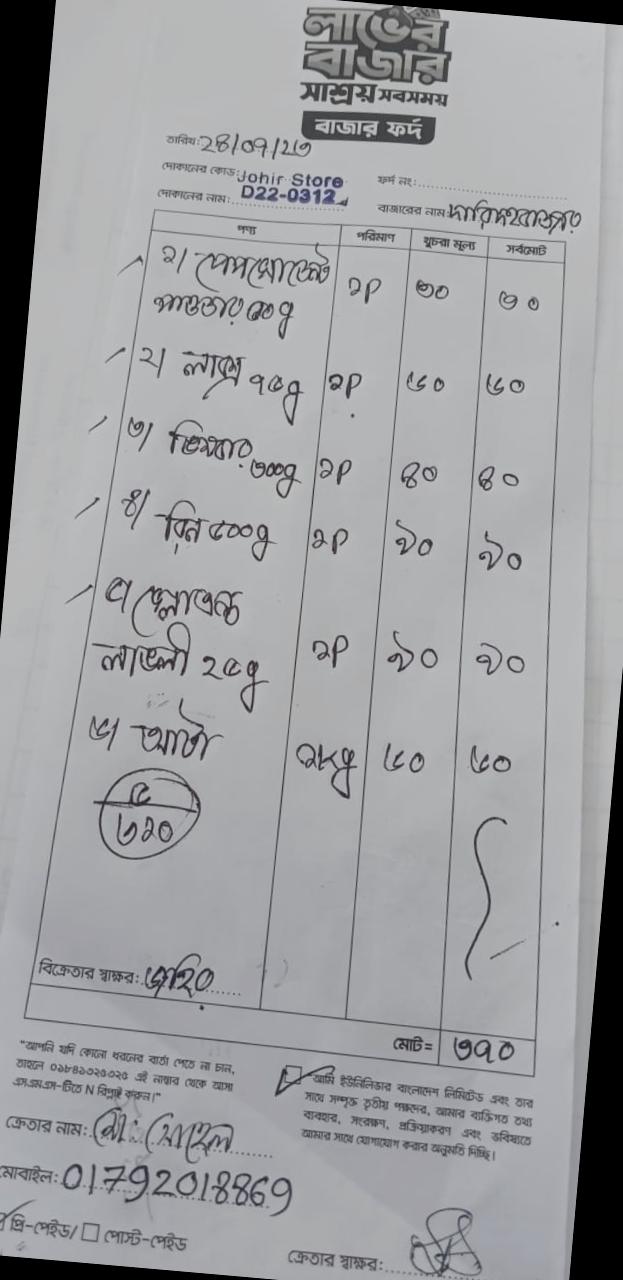 লাভের
বাজার
সাশ্রয় সবসময়
বাজার ফর্দ
তারিখ: 28/07/23
দোকানের কোড: Johir Store ফর্দ নং:
দোকানের নাম: D22-0312 বাজারের নাম:
পণ্য পরিমাণ খুচরা মূল্য সর্বমোট
১। পেপসোডেন্ট
পাওডার ৫০g ১P ৩০ ৩০
২। লাক্স ৭৫g ১P ৬০ ৬০
৩। ভিমবার ৩০০g ১P ৪০ ৪০
৪। রিন ৫০০g ১P ৯০ ৯০
৫। গ্লোএন্ড
লাভলী ২৫g ১P ৯০ ৯০
৬। আটা ১kg ৬০ ৬০
৫
৩১০
বিক্রেতার স্বাক্ষর: জহির
মোট= ৩৭০
"আপনি যদি কোনো ধরনের বার্তা পেতে না চান,
তাহলে ০১৮৪১০২৫০২৫ এই নাম্বার থেকে আসা
এসএমএস-টিতে N রিপ্লাই করুন।"
আমি ইউনিলিভার বাংলাদেশ লিমিটেড এবং তার
সাথে সম্পৃক্ত তৃতীয় পক্ষদের, আমার ব্যক্তিগত তথ্য
ব্যবহার, সংরক্ষণ, প্রক্রিয়াকরণ এবং ভবিষ্যতে
আমার সাথে যোগাযোগ করার অনুমতি দিচ্ছি।
ক্রেতার নাম: মো: সোহেল
মোবাইল: 01792018869
প্রি-পেইড/ পোস্ট-পেইড
ক্রেতার স্বাক্ষর: